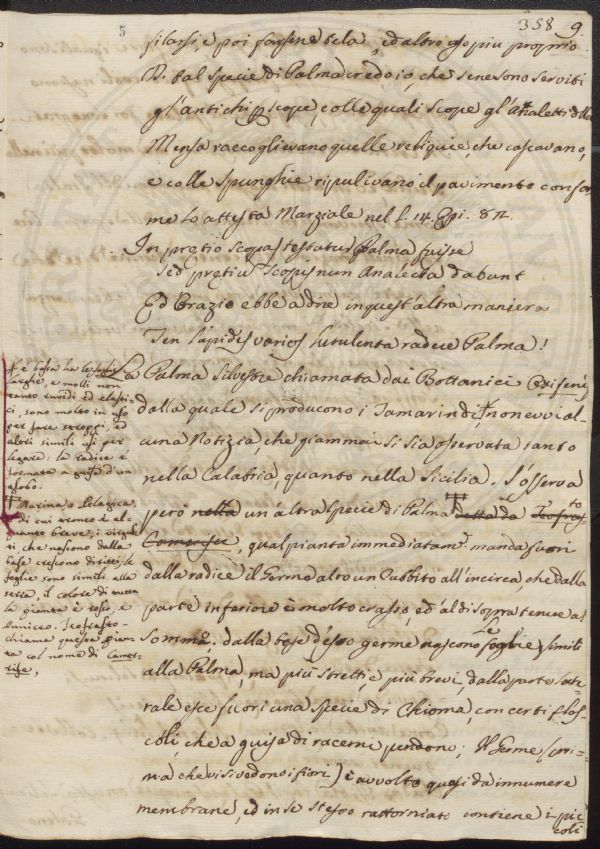 5
358 9.
filarsi, e poi farsene tela, ed altro uso più proprio
Di tal specie di Palma credo io, che se ne sono serviti
gl'antichi p scope, colle quali scope gl'Analetti della
Mensa raccoglievano quelle reliquie, che cascavano,
e colle Spunghie ripulivano il pavimento confor
me lo attesta Marziale nel L. 14. Epi. 82.
In pretio scopas testatur Palma fuisse
sed pretiu Scopis nun Analecta dabant
Ed Orazio ebbe a dire in quest'altra maniera
Ten lapides varios lutulenta radere Palma!
La Palma Silvestre chiamata dai Bottanici
dalla quale si producono i Tamarindi, non evvi al-
cuna Notizia, che giammai si sia osservata tanto
nella Calabria, quanto nella Sicilia. S'osserva
però nella un'altra specie di Palma detta da Teofrasto
Camerife, qual pianta immediatam. manda fuori
dalla radice il Germe alto un Cubbito all'incirca, che dalla
parte inferiore è molto crasso, ed al di sopra tenue al
sommo. dalla base d'esso germe nascono le foglie simili
alla Palma, ma più stretti, e più brevi, dalla parte late-
rale esce fuori una specie di Chioma, con certi flos-
coli che a guisa di racemi pendono; Il Germe (pri-
ma che vi si vedono i fiori) è avvolto quasi da innumere
membrane, ed in se stesso rattorniato contiene i pic
coli
e bassa ha le foglie
larghe, e molti non
tanto ruvidi ed elasti-
ci, sono molto in uso
per fare stroppi, ed
altri simili usi per
legare: la radice è
formata a guisa d'un
globo.
Marina o Pelagica,
di cui il tronco è al-
quanto breve, i virgul
ti che nascono dalla
base crescono diritti, le
foglie sono simili alla
setta, il colore di tutta
la pianta è rosso, e
puniceo. Teofrasto
chiama questa pian-
ta col nome di Came-
rife,